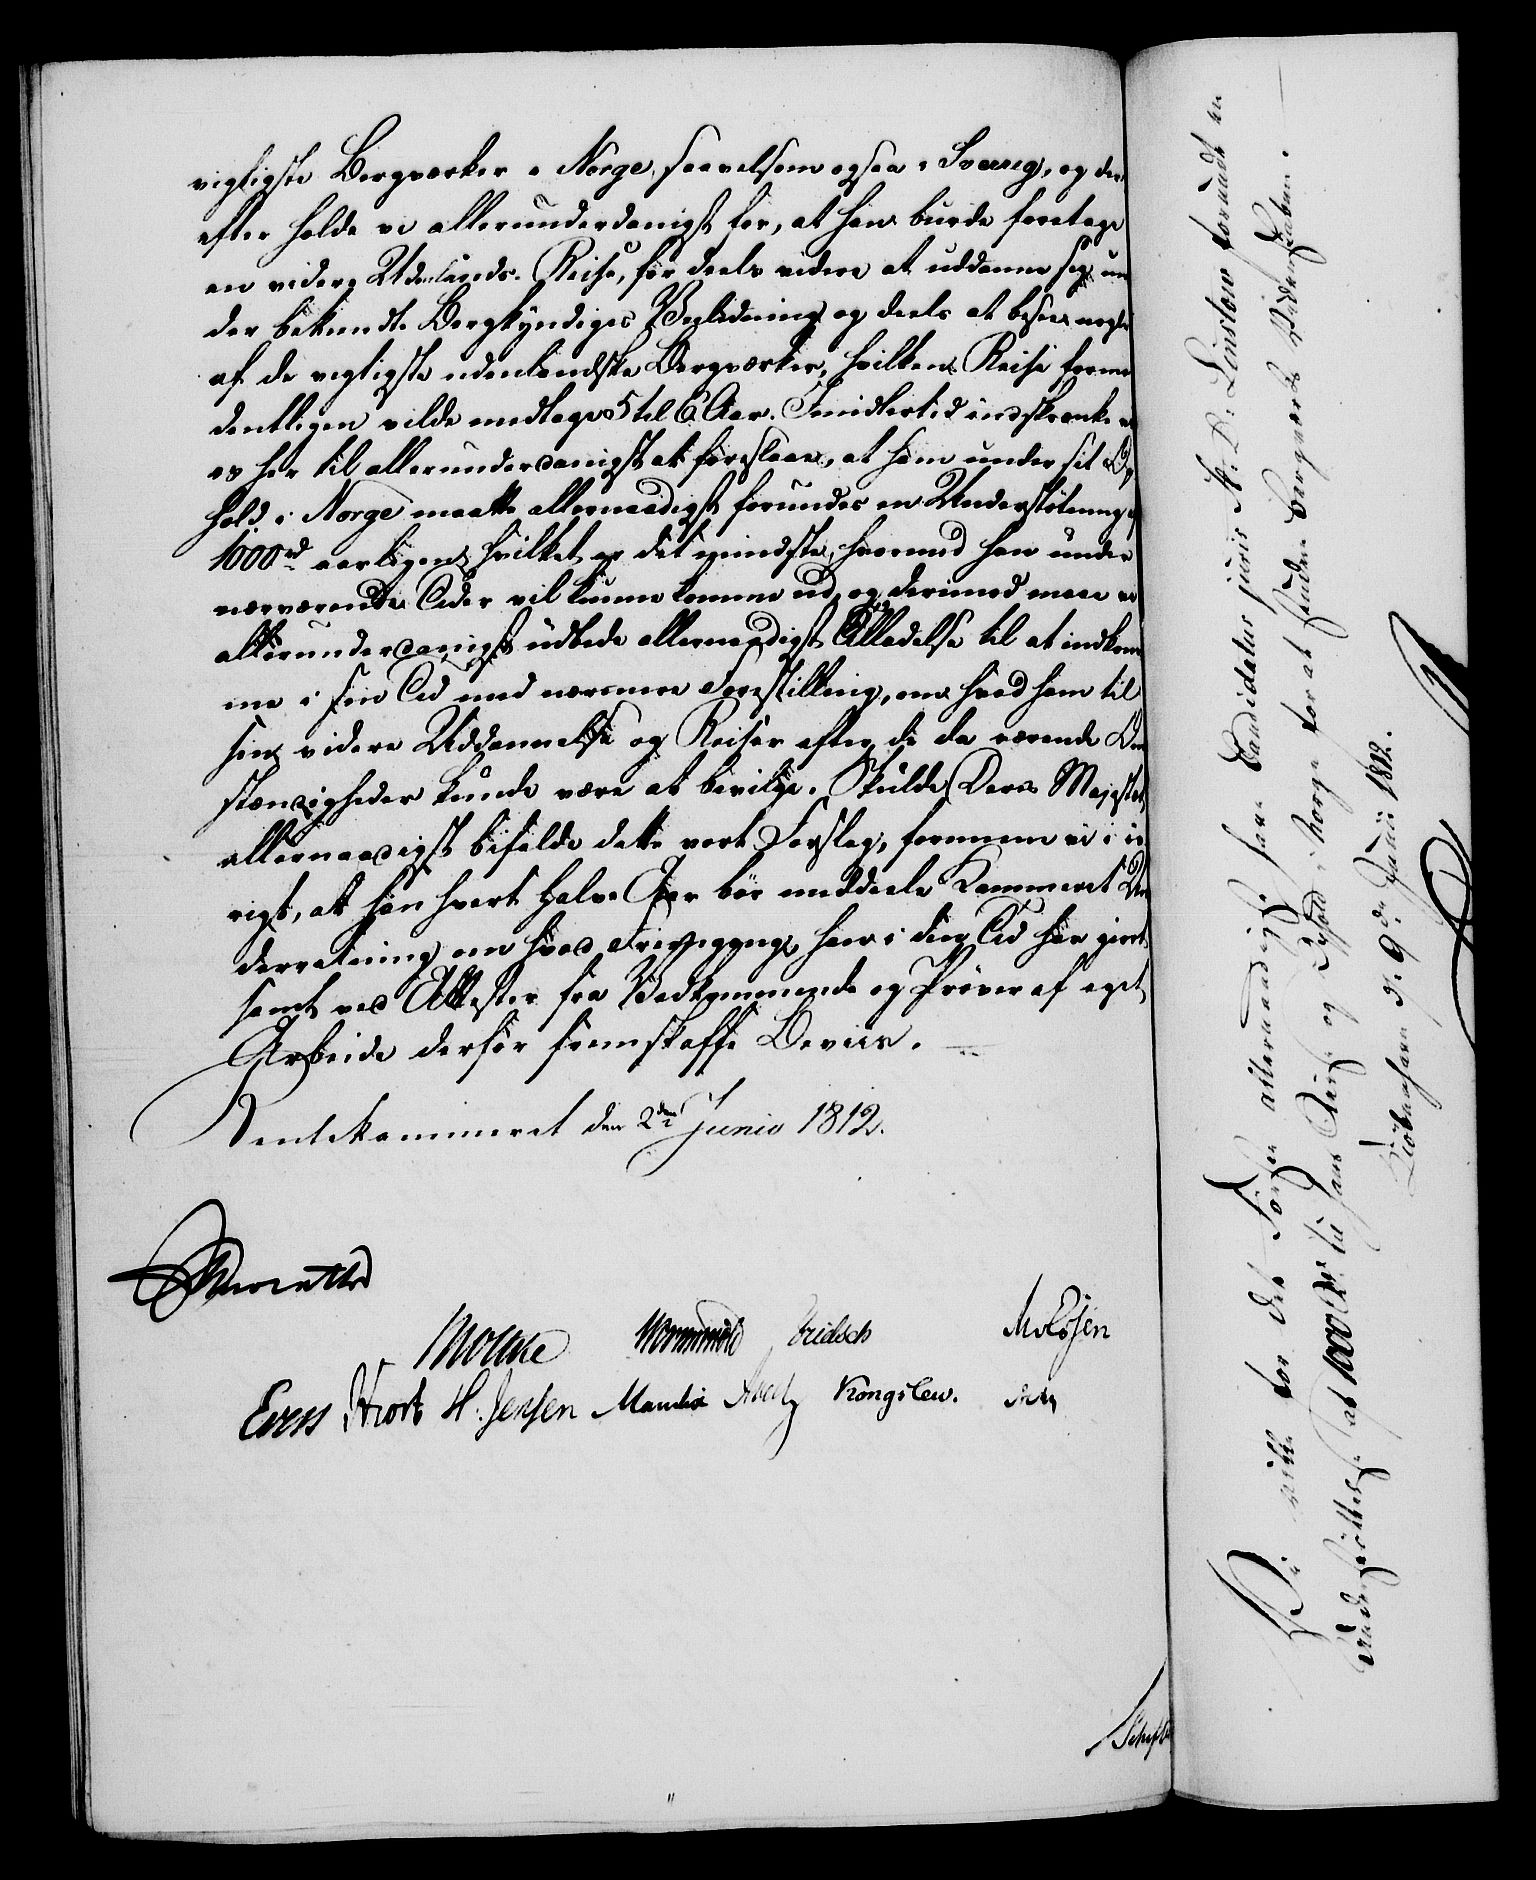 vigtigste Bergværker i Norge, saavelsom ogsaa i Sverrig, og der-
efter holde vi allerunderdanigst for, at han burde foretage
en videre Udenlands-Reise, for deels videre at uddanne sig un
der bekiendte Bergkyndiges Veiledning og deels at besee nogle
af de vigtigste udenlandske Bergværker, hvilken Reise formo
dentligen vilde medtage 5 til 6 Aar. Imidlertid indskrænke vi
os her til allerunderdanigst at foreslaae, at ham under sit Op
hold i Norge maatte allernaadigst forundes en Understøtning af
1000 rd aarligen, hvilket er det mindste, hvormed han under
nærværende Tider vil kunne komme ud, og derimod maae vi
allerunderdanigst udbede allernaadigst Tilladelse til at indkom
me i sin Tid med nærmere Forestilling, om hvad ham til
hans videre Uddannelse og Reiser efter de da værende Om
stændigheder kunde være at bevilge. Skulde Deres Majestet
allernaadigst bifalde dette vort Forslag, formene vi i øv
rigt, at han hvert halve Aar bør meddele Kammeret Un
derretning om hvad Fremgang, han i den Tid har giort,
samt ved Attester fra Vedkommende og Prøver af eget
Arbeide derfor fremskaffe Beviis.
Rentekammeret den 2den Junio 1812.
Moltke Wormskiold Fridsch
Evers Hiort H. Jensen Mandix Kongslew.
Vi ville for det Første allernaadigst have Candidatus juris H. D. Linstow forundt en
Understøttelse af 1000 rd til hans Reise og Ophold i Norge for at studere Bergværks Videnskaben.
Kiøbenhavn d: 9de Junii 1812.